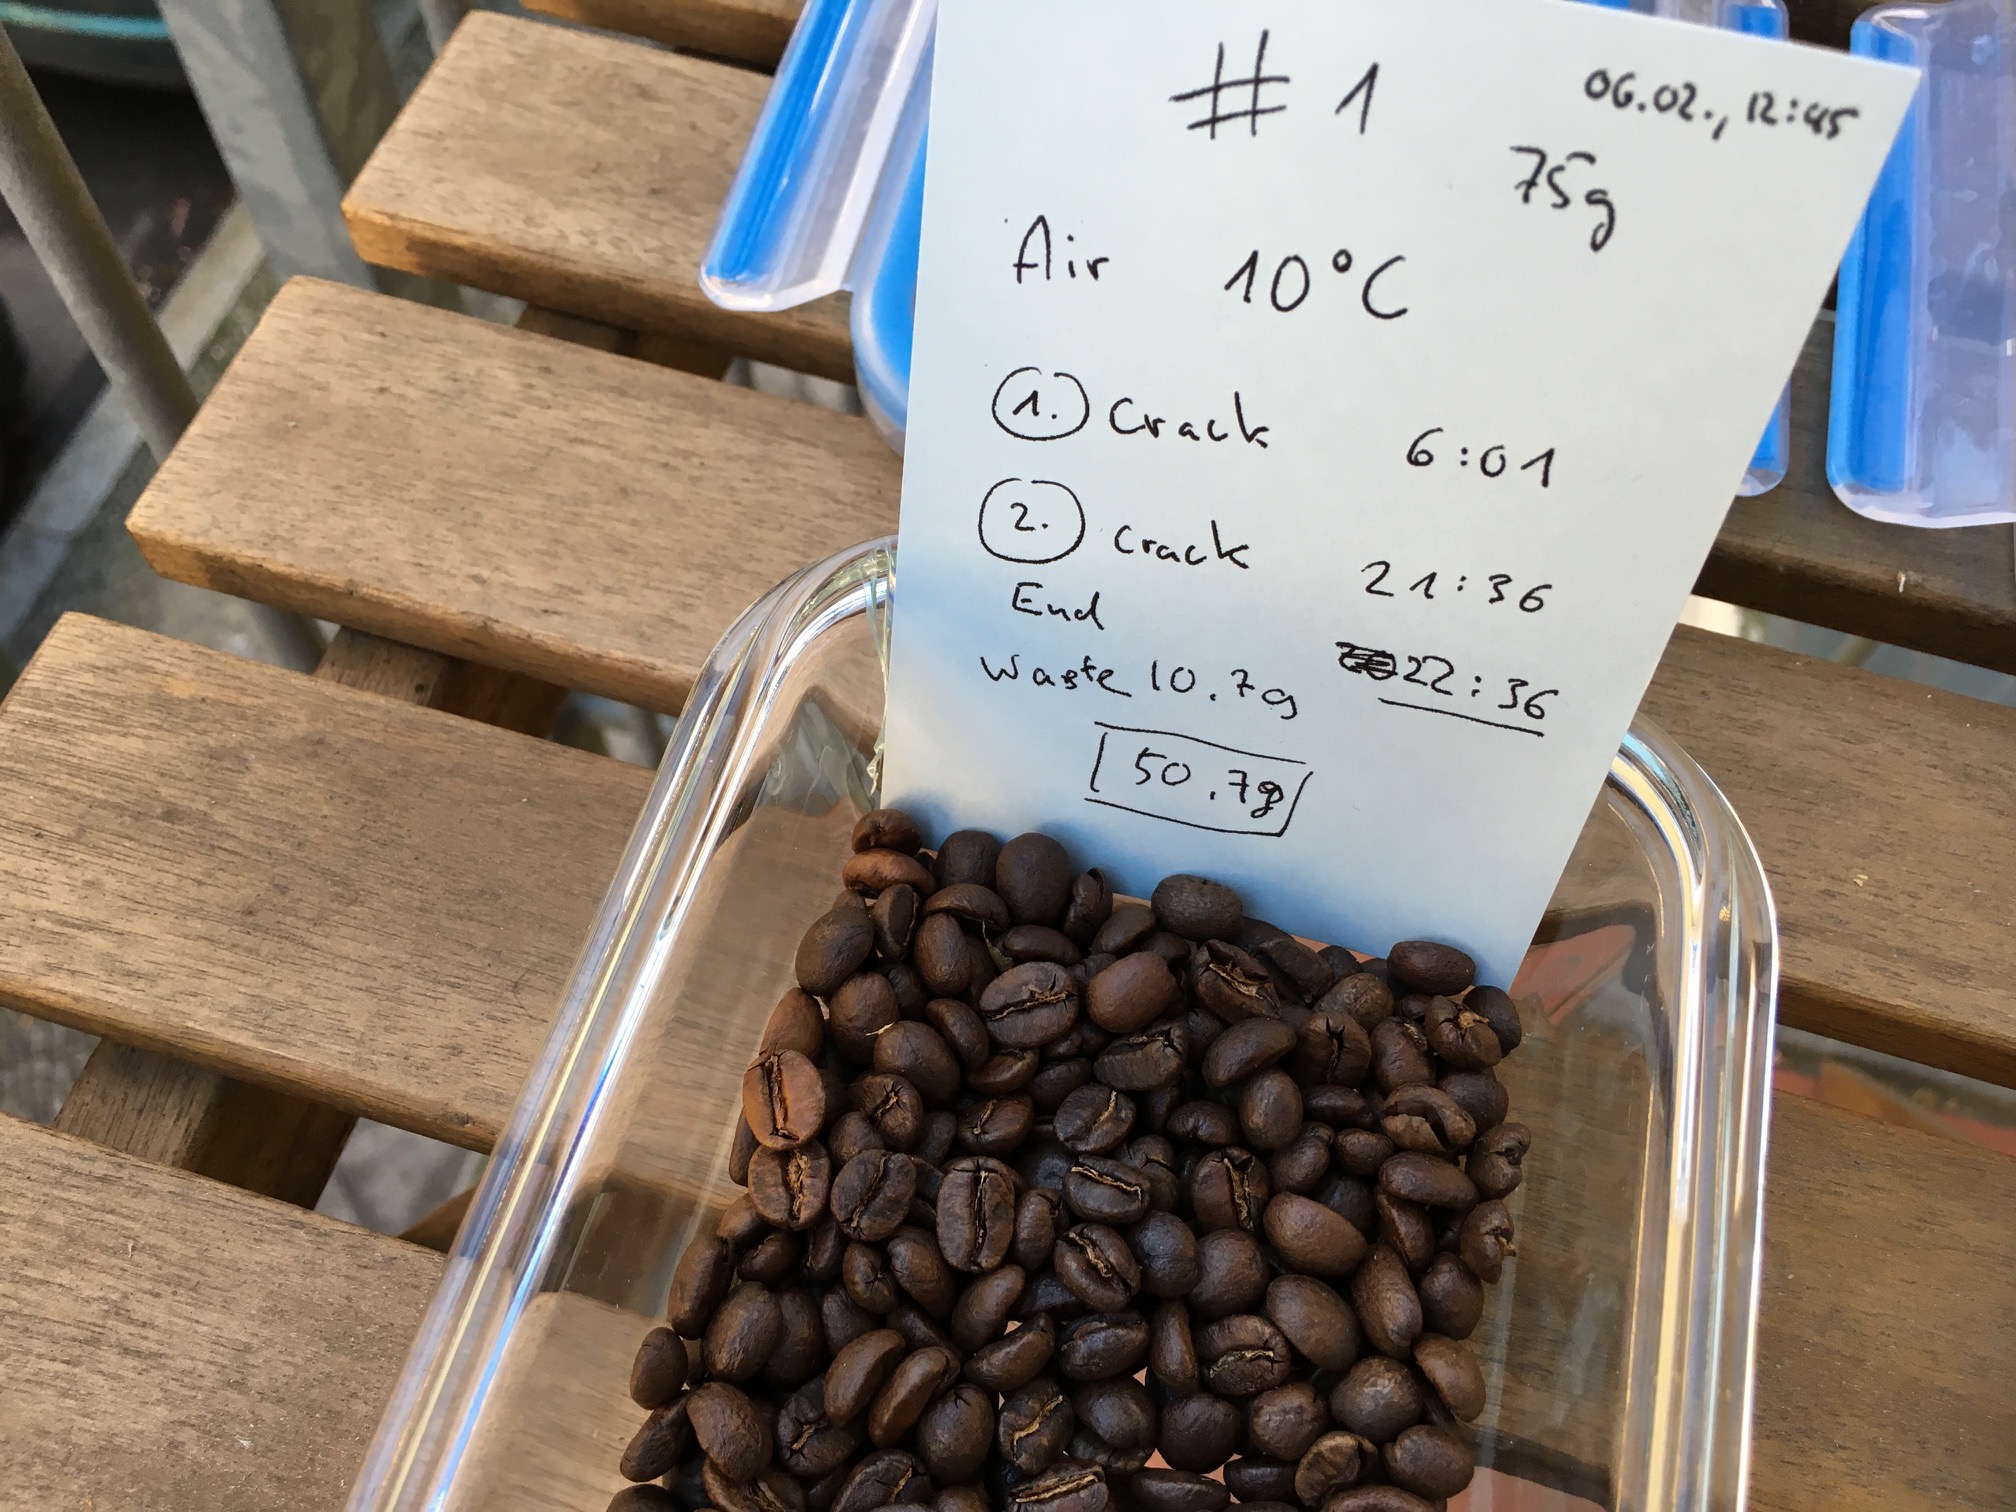 # 1 06.02., 12:45
75g
Air 10°C
1. Crack 6:01
2. Crack 21:36
End 22:36
Waste 10.7g
50.7g